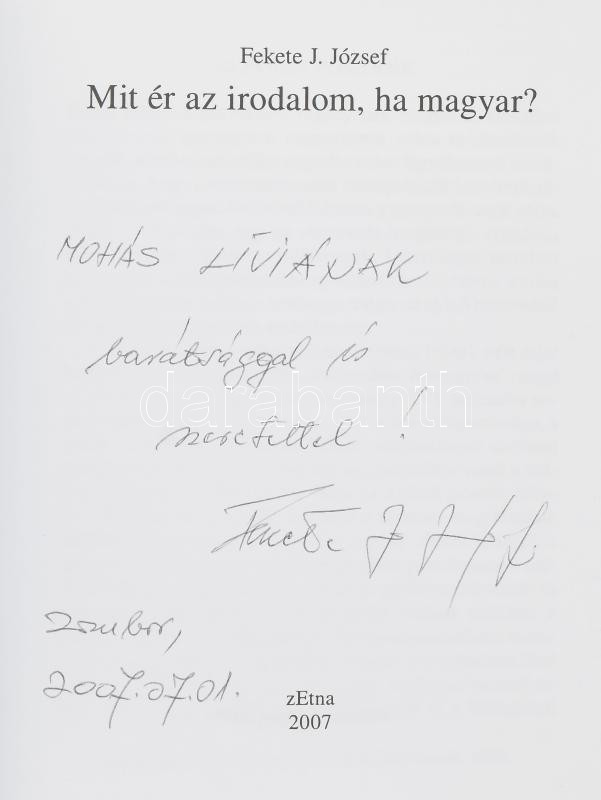 Fekete J. József
Mit ér az irodalom, ha magyar?
MOHÁS LÍVIÁNAK
barátsággal és
darabanth
szeretettel!
Fekete J József
Zombor,
2007.07.01.
zEtna
2007